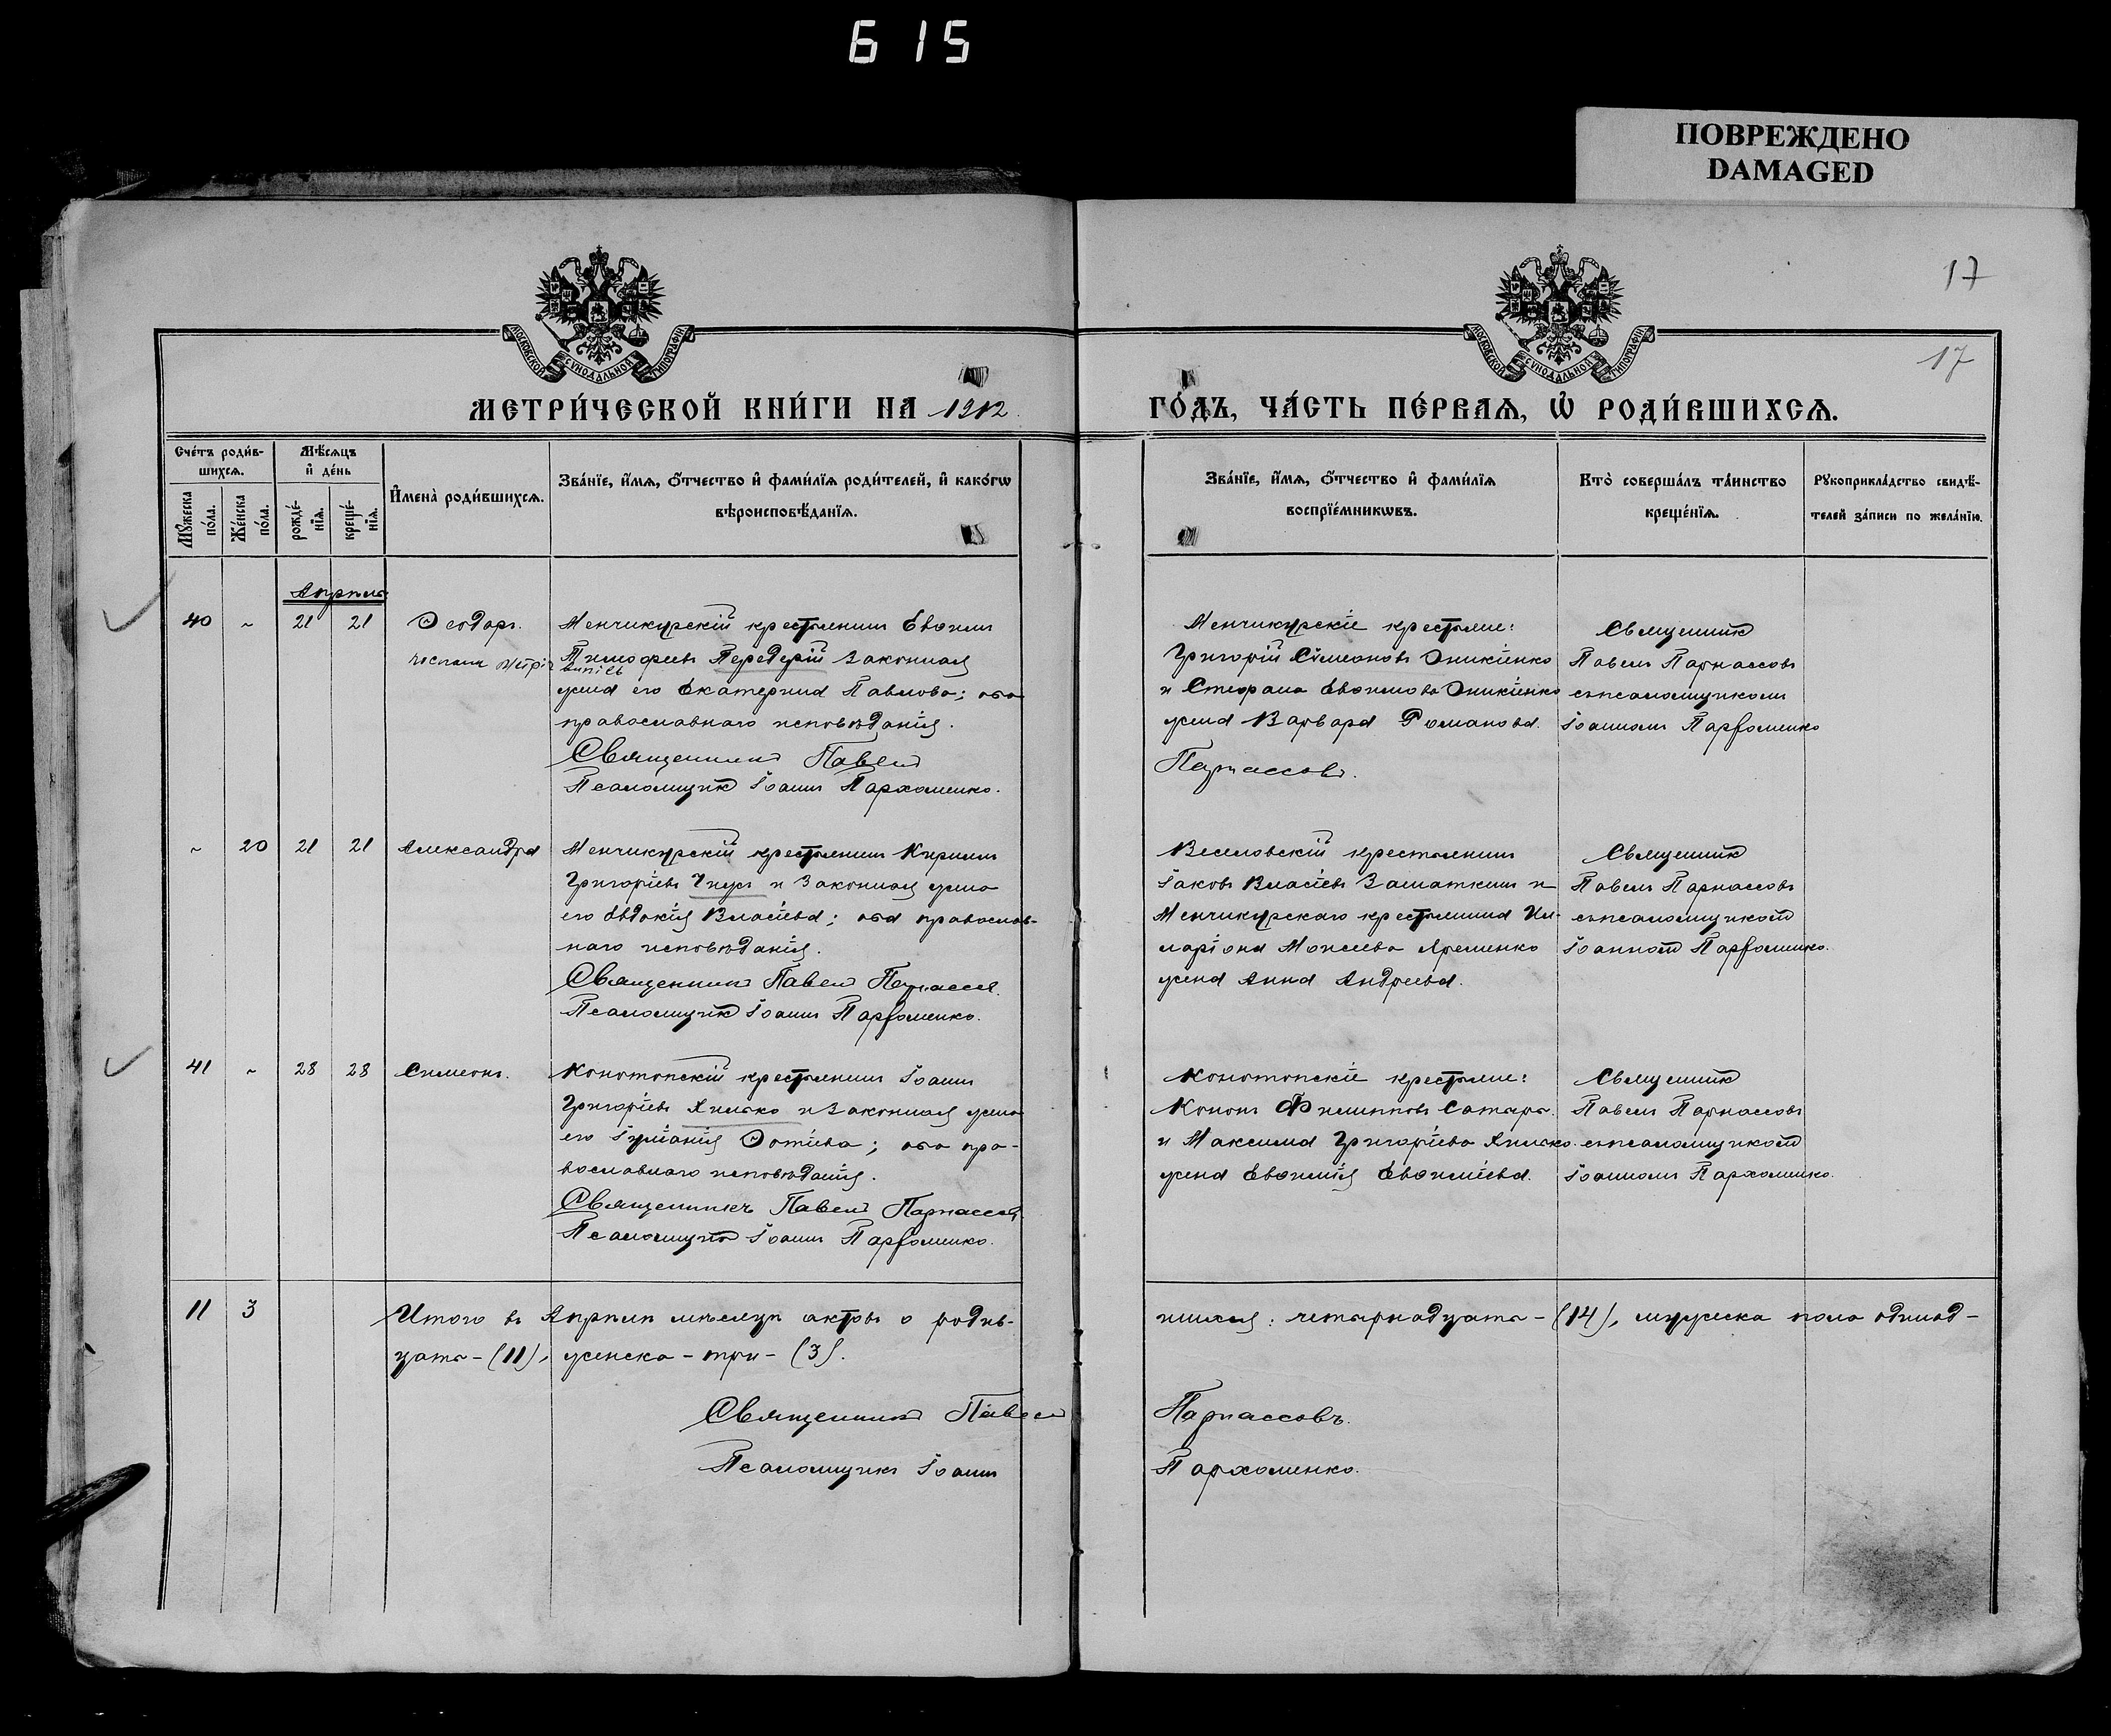 615
ПОВРЕЖДЕНО
DAMAGED
17
17
МОСКОВСКОЙ СѴНОДАЛЬНОЙ ТИПОГРАФІИ
МОСКОВСКОЙ СѴНОДАЛЬНОЙ ТИПОГРАФІИ
МЕТРИ́ЧЕСКОЙ КНИ́ГИ НА 1912
ГО́ДЪ, ЧА́СТЬ ПЕ́РВАѦ, Ѡ҆ РОДИ́ВШИХСѦ.
Сче́тъ роди́в-
шихсѧ.
Мꙋжеска по́ла.
Же́нска по́ла.
Мѣ́сѧцъ
и҆ де́нь
рожде́-
нїѧ.
креще́-
нїѧ.
И҆мена̀ роди́вшихсѧ.
Зва́нїе, и҆́мѧ, ѻ҆́тчество и҆ фами́лїѧ роди́телей, и҆ како́гѡ
вѣроисповѣ́данїѧ.
Зва́нїе, и҆́мѧ, ѻ҆́тчество и҆ фами́лїѧ
воспрїе́мникѡвъ.
Кто̀ соверша́лъ та́инство
креще́нїѧ.
Рꙋкоприкла́дство свидѣ́-
телей за́писи по жела́нїю.
Апрѣль
40 ~ 21 21 Ѳеодоръ.
Менчикурскій крестьянинъ Евѳимъ
Тимофеевъ Передерій законная
жена его Екатерина Павлова; оба
православнаго исповѣданія.
Священникъ Павелъ
Псаломщикъ Іоаннъ Пархоменко.
Менчикурскіе крестьяне:
Григорій Симеоновъ Оникіенко
и Стефана Евѳимова Оникіенко
жена Варвара Романова.
Парнассовъ.
Священникъ
Павелъ Парнассовъ
съ псаломщикомъ
Іоанномъ Парфоменко
~ 20 21 21 Александра
Менчикурскій крестьянинъ Кириллъ
Григорьевъ и законная жена
его Евдокія Власіева; оба православ-
наго исповѣданія.
Священникъ Павелъ Парнассовъ.
Псаломщикъ Іоаннъ Парфоменко.
Веселовскій крестьянинъ
Іаковъ Власіевъ и
Менчикурскаго крестьянина Ил-
ларіона Моисеева Яременко
жена Анна Андреева.
Священникъ
Павелъ Парнассовъ
съ псаломщикомъ
Іоанномъ Парфоменко.
41 ~ 28 28 Симеонъ.
Конотопскій крестьянинъ Іоаннъ
Григоріевъ Хилько и законная жена
его Іуліанія Фотіева; оба пра-
вославнаго исповѣданія.
Священникъ Павелъ Парнассовъ.
Псаломщикъ Іоаннъ Парфоменко.
Конотопскіе крестьяне:
Кононъ Филипповъ
и Максима Григоріева Хилько
жена Евѳимія Евѳиміева.
Священникъ
Павелъ Парнассовъ
съ псаломщикомъ
Іоанномъ Пархоменко.
11 3 Итого въ Апрѣлѣ мѣсяцѣ актовъ о родив-
шихся: четырнадцать - (14), мужеска пола одинад-
цать - (11), женска - три - (3).
Священникъ Павелъ
Парнассовъ.
Псаломщикъ Іоаннъ
Пархоменко.